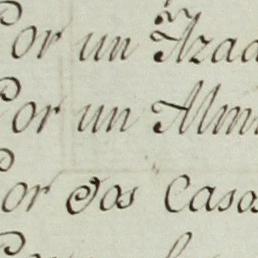 Por un Azad
Por un Almi
Por dos Casos